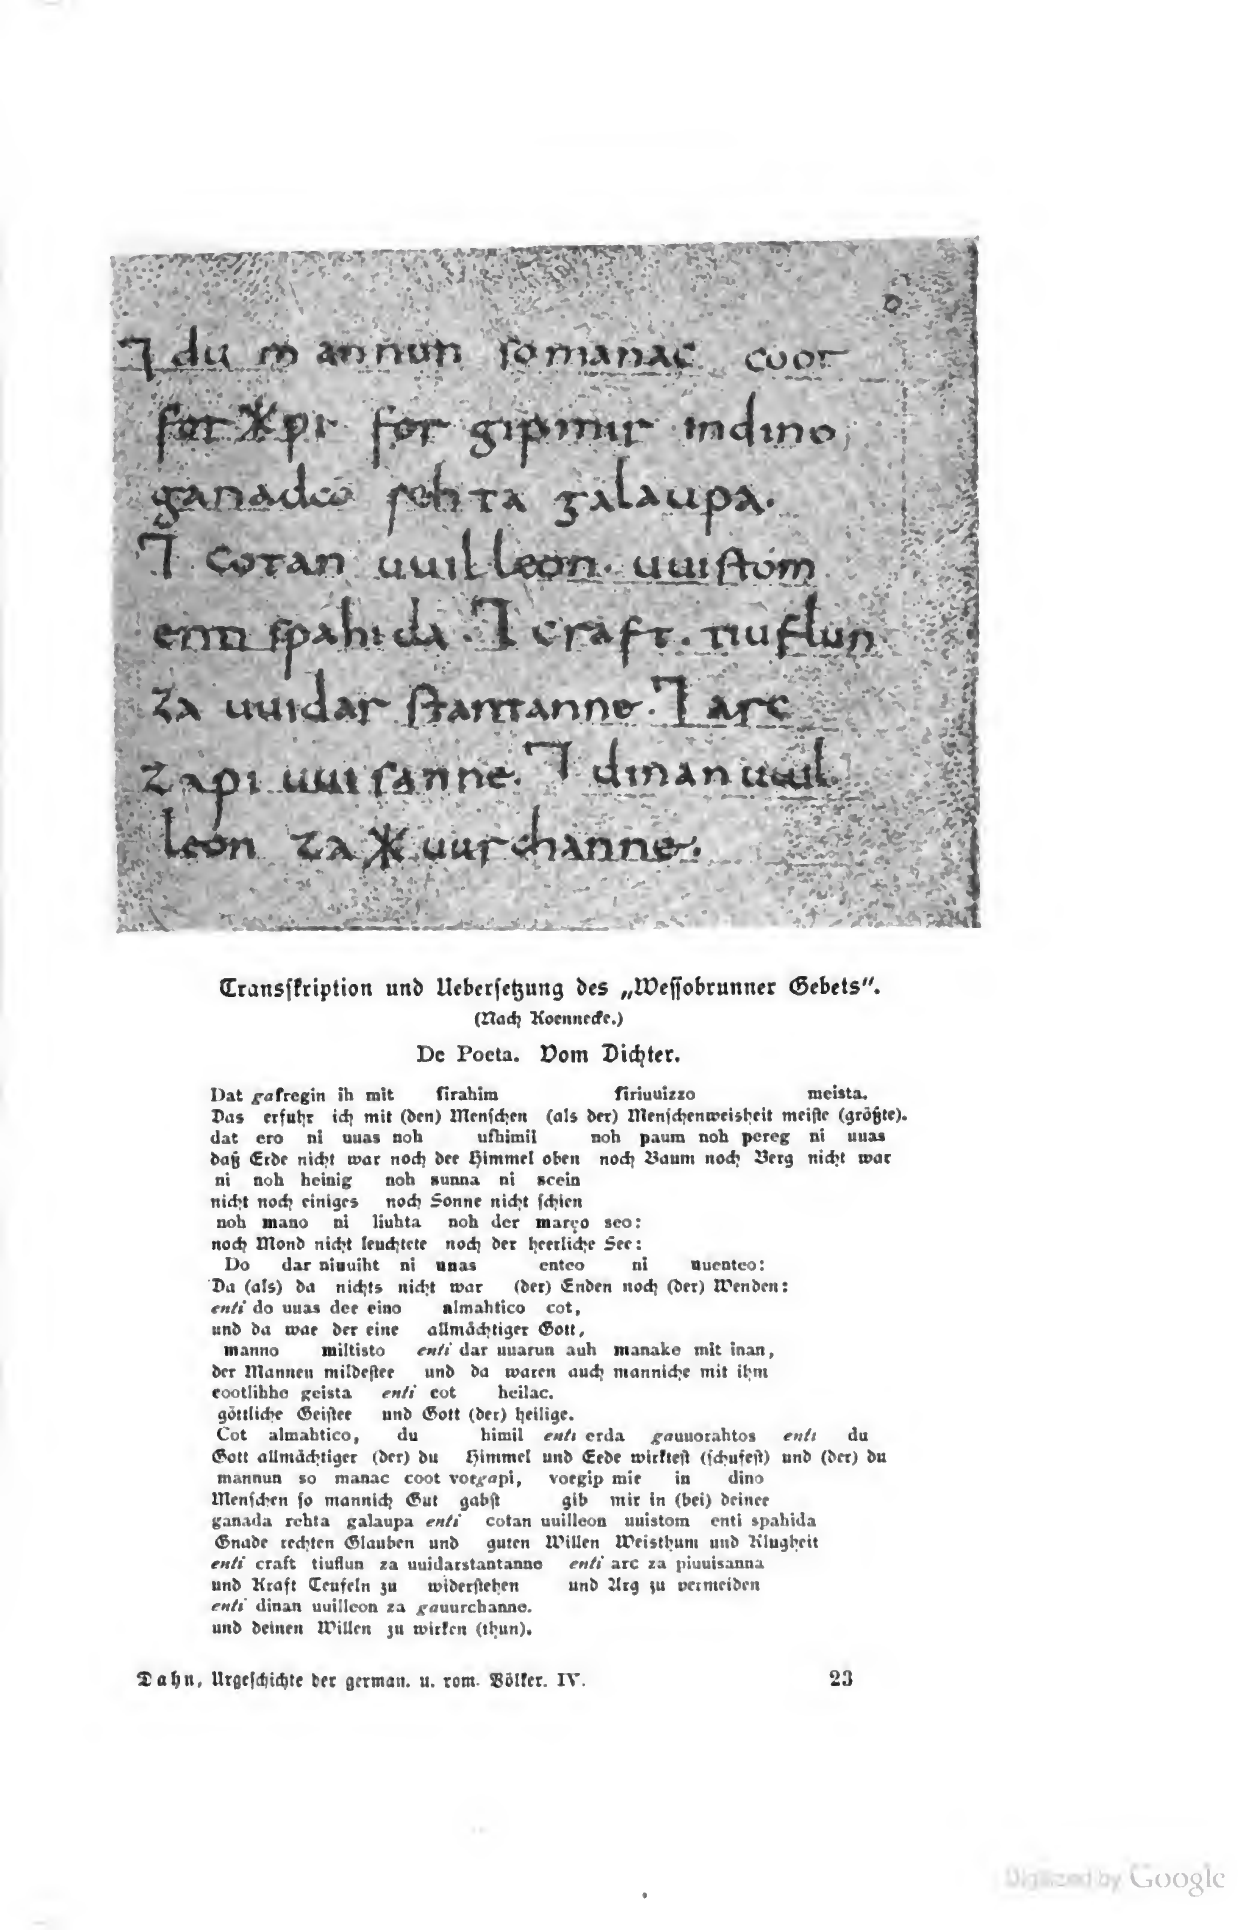 ⁊ du mannun ſomanac coot
forӿpi· forgipmir indino
ganada rehta galaupa·
⁊ cotan uuilleon· uuiſtóm·
enti ſpahida· ⁊ craft· tiuflun
za uuidar ſtantanne· ⁊ arc
zapi uuiſanne· ⁊ dinan uuil
leon za ӿuurchanne·
Transſkription und Ueberſetzung des „Weſſobrunner Gebets“.
(Nach Koennecke.)
De Poeta. Vom Dichter.
Dat gafregin ih mit firahim firiuuizzo meista.
Das erfuhr ich mit (den) Menſchen (als der) Menſchenweisheit meiſte (größte).
dat ero ni uuas noh ufhimil noh paum noh pereg ni uuas
daß Erde nicht war noch der Himmel oben noch Baum noch Berg nicht war
ni noh heinig noh sunna ni scein
nicht noch einiges noch Sonne nicht ſchien
noh mano ni liuhta noh der maręo seo:
noch Mond nicht leuchtete noch der herrliche See:
Do dar niuuiht ni uuas enteo ni uuenteo:
Da (als) da nichts nicht war (der) Enden noch (der) Wenden:
enti do uuas der eino almahtico cot,
und da war der eine allmächtiger Gott,
manno miltisto enti dar uuarun auh manake mit inan,
der Mannen mildeſter und da waren auch manniche mit ihm
cootlihhe geista enti cot heilac.
göttliche Geiſter und Gott (der) heilige.
Cot almahtico, du himil enti erda gauuorahtos enti du
Gott allmächtiger (der) du Himmel und Erde wirkteſt (ſchufeſt) und (der) du
mannun so manac coot vorgapi, vorgip mir in dino
Menſchen ſo mannich Gut gabſt gib mir in (bei) deiner
ganada rehta galaupa enti cotan uuilleon uuistom enti spahida
Gnade rechten Glauben und guten Willen Weisthum und Klugheit
enti craft tiuflun za uuidarstantanne enti arc za piuuisanna
und Kraft Teufeln zu widerſtehen und Arg zu vermeiden
enti dinan uuilleon za gauurchanne.
und deinen Willen zu wirken (thun).
Dahn, Urgeſchichte der german. u. rom. Völker. IV. 23
Digitized by Google